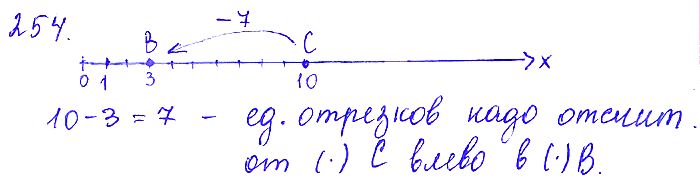 254.
-7
B C
0 1 3 10 x
10-3=7 - ед. отрезков надо отсчит.
от (·) C влево в (·) B.